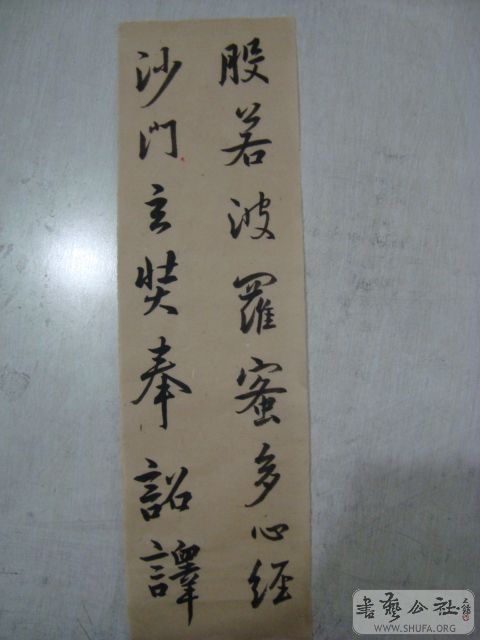 般若波羅蜜多心経
沙門玄奘奉詔譯
書藝公社
WWW.SHUFA.ORG